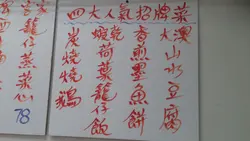 四大人氣招牌菜
大澳山水豆腐
香煎墨魚餅
蝦乾荷葉籠仔飯
炭燒燒鵝
籠仔蒸菜心
78